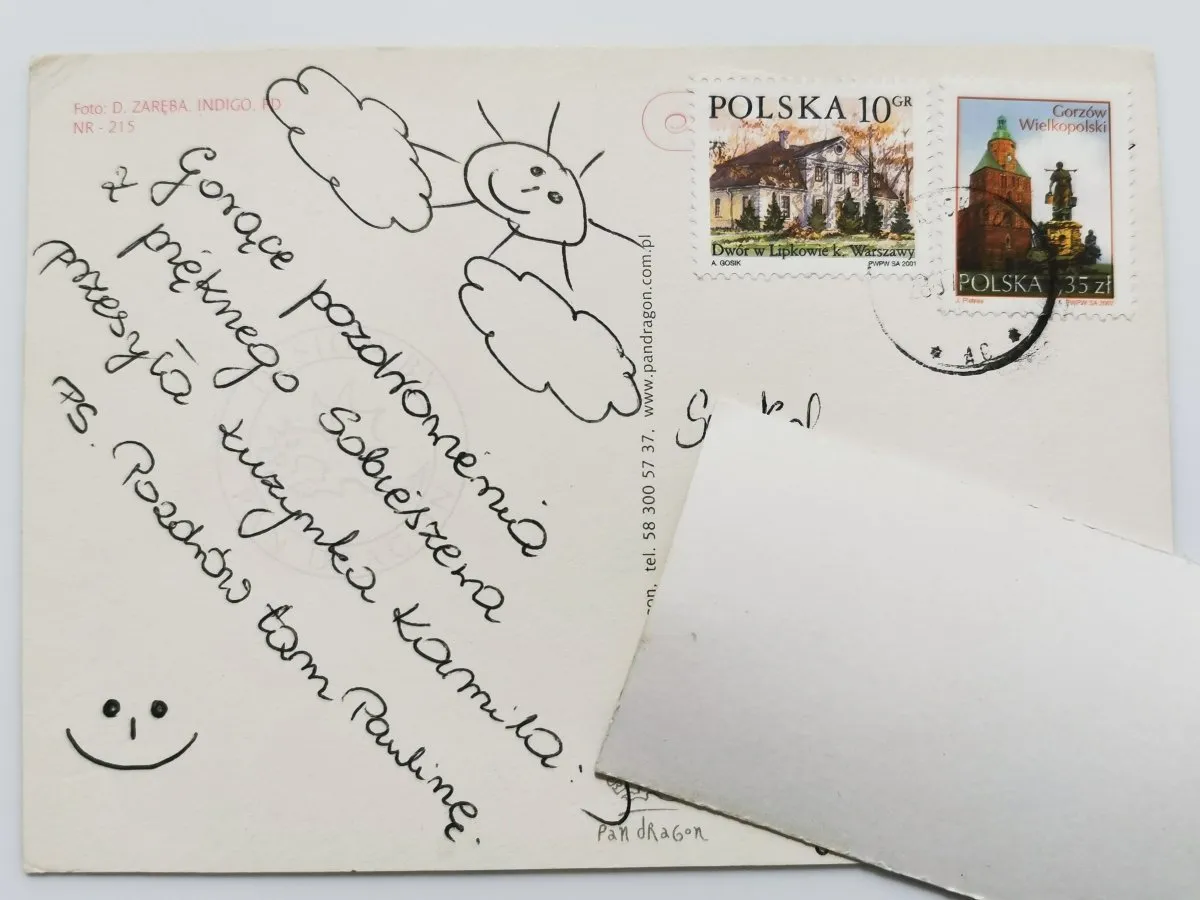 Foto: D. ZARĘBA, INDIGO, PD
NR - 215
Gorące pozdrowienia
z pięknego Sobieszewa
przesyła kuzynka Kamila:)
PS. Pozdrów tam Paulinę.
tel. 58 300 57 37, www.pandragon.com.pl
pan dRagon
POLSKA 10 GR
Dwór w Lipkowie k. Warszawy
A. GOSIK PWPW SA 2001
Gorzów
Wielkopolski
POLSKA 35 zł